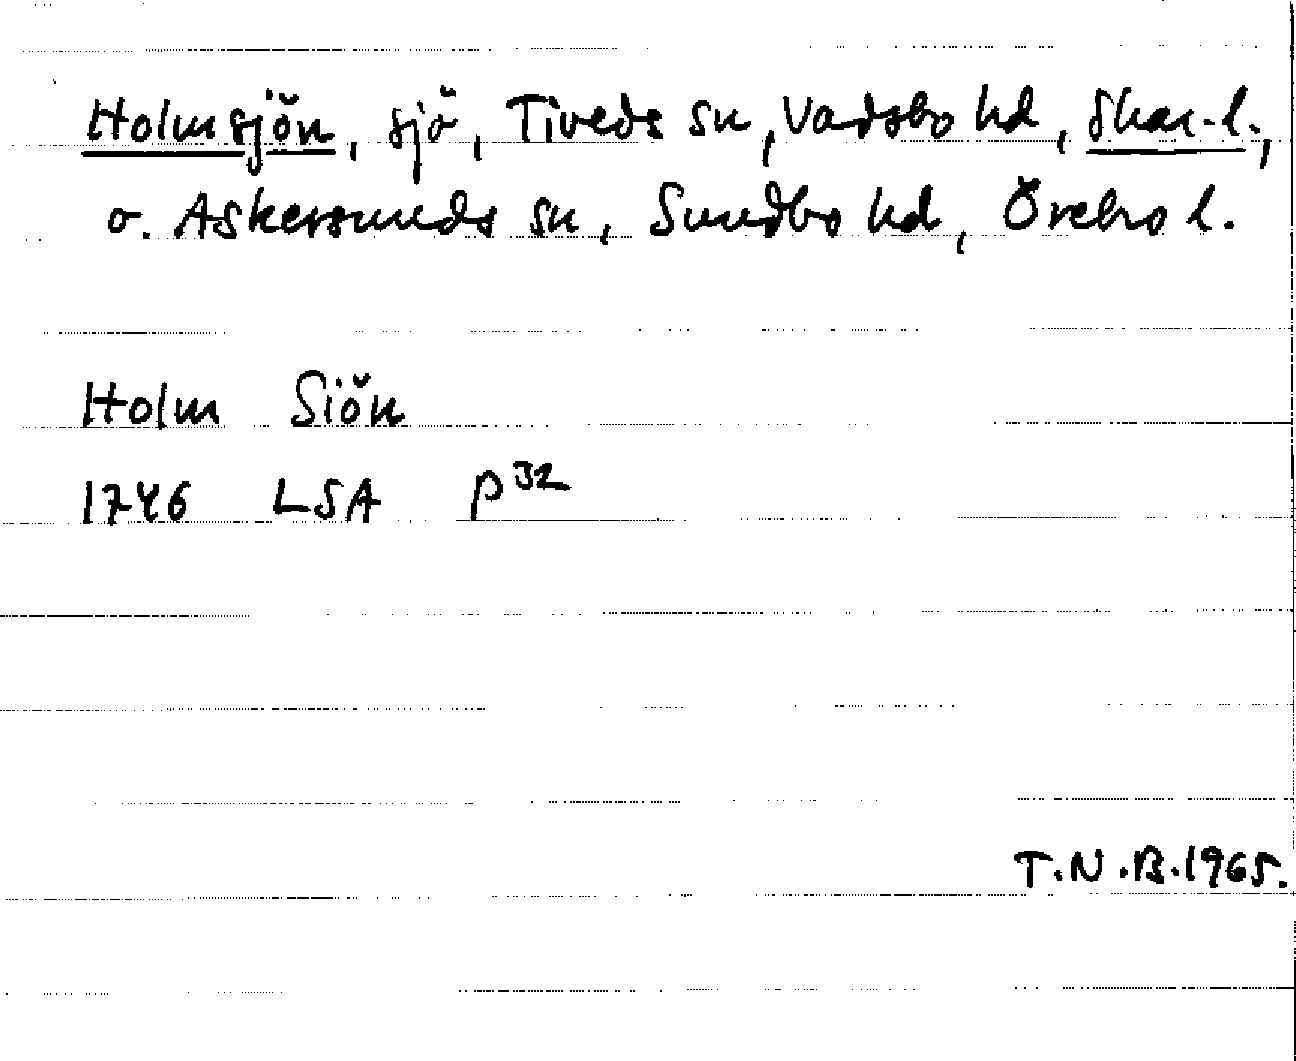 Holmsjön, sjö, Tiveds sn, Vadsbo hd, Skar.l.,
o. Askersunds sn, Sundbo hd, Örebro l.
Holm Siön
1746 LSA P32
T.N.B.1965.